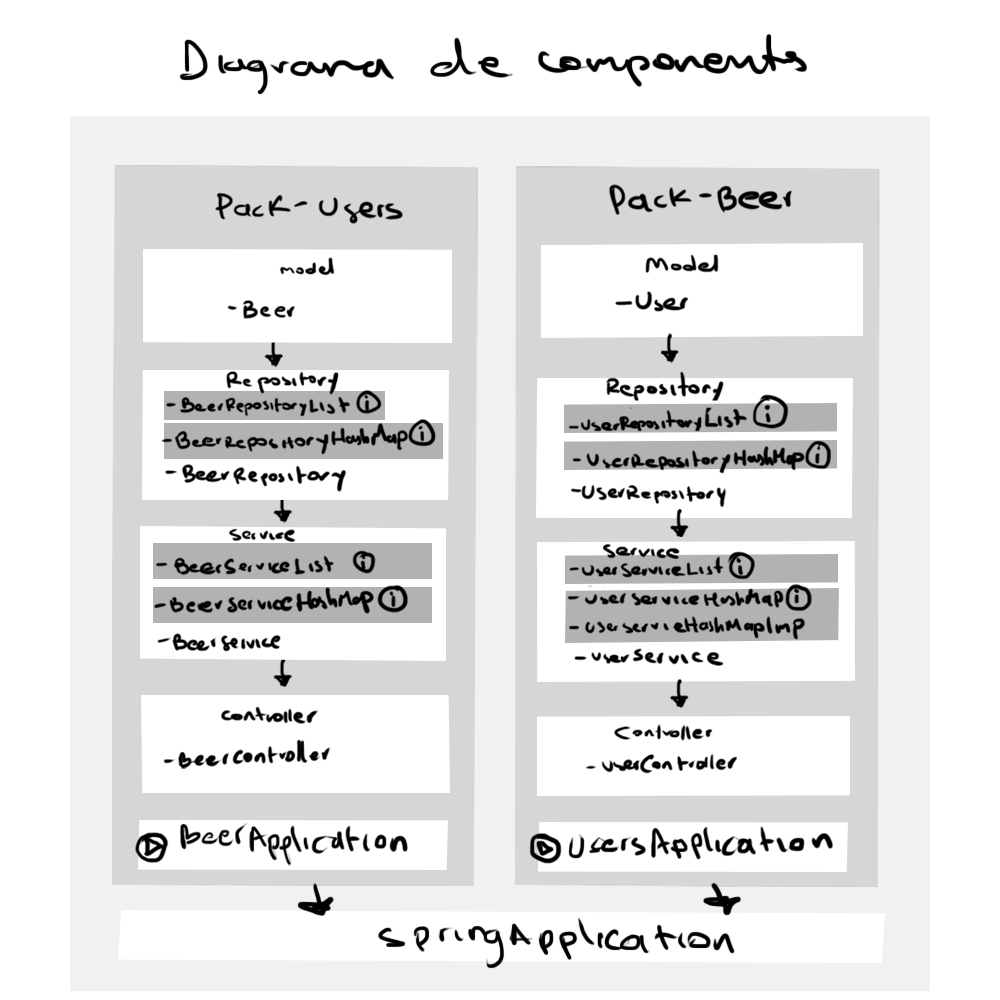 Diagrama de components
Pack-Users
model
-Beer
Repository
-BeerRepositoryList i
-BeerRepositoryHashMap i
-BeerRepository
Service
-BeerServiceList i
-BeerServiceHashMap i
-BeerService
controller
-BeerController
BeerApplication
Pack-Beer
Model
-User
Repository
-UserRepositoryList i
-UserRepositoryHashMap i
-UserRepository
Service
-UserServiceList i
-UserServiceHashMap i
-UserServieHashMapImp
-UserService
Controller
-UserController
UsersApplication
SpringApplication